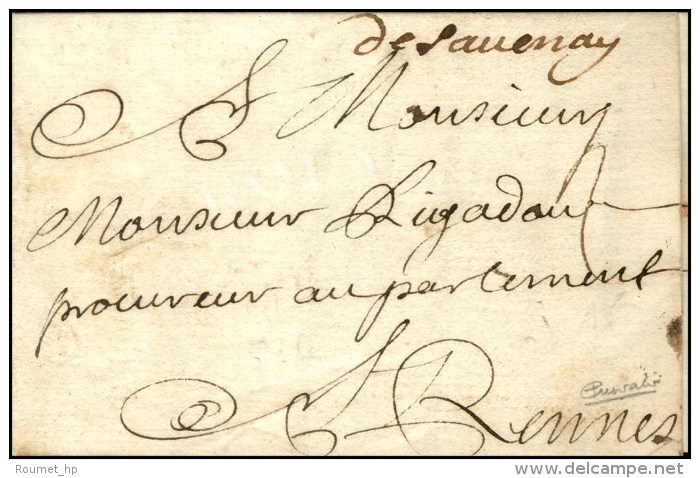 de Sauenay
A Monsieur
Monsieur Rigadoux
procureur au parlement
A Rennes
Roumet_hp
© delcampe.net